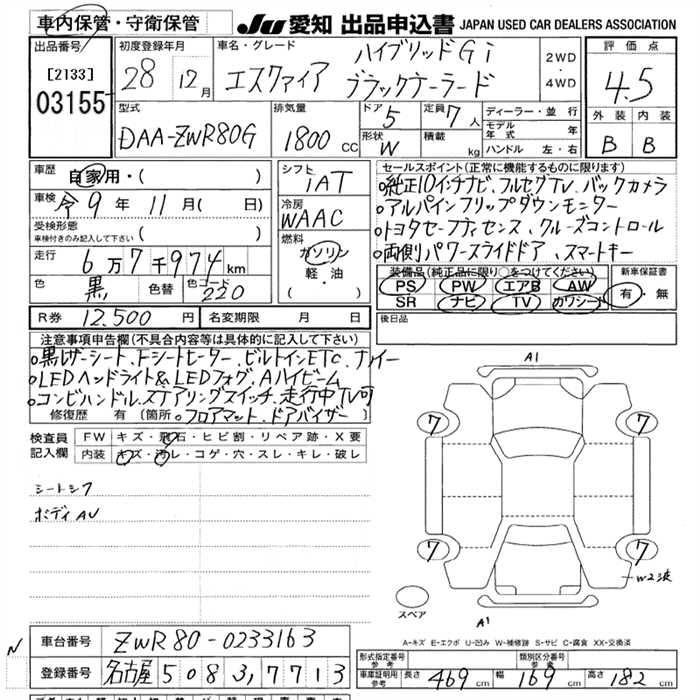 車内保管・守衛保管
JU 愛知 出品申込書 JAPAN USED CAR DEALERS ASSOCIATION
出品番号 [2133] 03155
初度登録年月 28 12月
車名・グレード エスクァイア ハイブリッドGi ブラックテーラード
2WD ・ 4WD
評価点 4.5
外装 B 内装 B
型式 DAA-ZWR80G
排気量 1800 CC
ドア 5 定員 7人
形状 W 積載 kg
ディーラー・並行
モデル年式 年
ハンドル 左・右
車歴 自家用・( )
車検 令9年11月( 日)
受検形態 車検付きのみ記入して下さい ( )
走行 6万7千974km
色 黒 色替 色コード 220
シフト IAT
冷房 WAAC
燃料 ガソリン 軽・油 ( )
セールスポイント(正常に機能するものに限ります)
○純正10インチナビ、フルセグTV、バックカメラ
○アルパインフリップダウンモニター
○トヨタセーフティセンス、クルーズコントロール
○両側パワースライドドア、スマートキー
装備品(純正品に限り○をつけてください)
PS PW エアB AW
SR ナビ TV カワシート
新車保証書 有・無
R券 12.500円 名変期限 月 日
後日品
注意事項申告欄(不具合内容等は具体的に記入して下さい)
○黒レザーシート、Fシートヒーター、ビルトインETC、ナノイー
○LEDヘッドライト&LEDフォグ、Aハイビーム
○コンビハンドル、ステアリングスイッチ、走行中TV可
修復歴 有 [箇所 ○フロアマット、ドアバイザー ]
検査員記入欄
FW キズ・飛石・ヒビ割・リペア跡・X要
内装 キズ・汚レ・コゲ・穴・スレ・キレ・破レ
シートシワ
ボディAU
A1
7 7
7 7
W2波
スペア
A1
A-キズ E-エクボ U-凹み W-補修跡 S-サビ C-腐食 XX-交換済
N
車台番号 ZWR80-0233163
登録番号 名古屋 508 ろ 7713
形式指定番号 参考 類別区分番号 参考
車庫証明用参考 長さ 469cm 幅 169cm 高さ 182cm